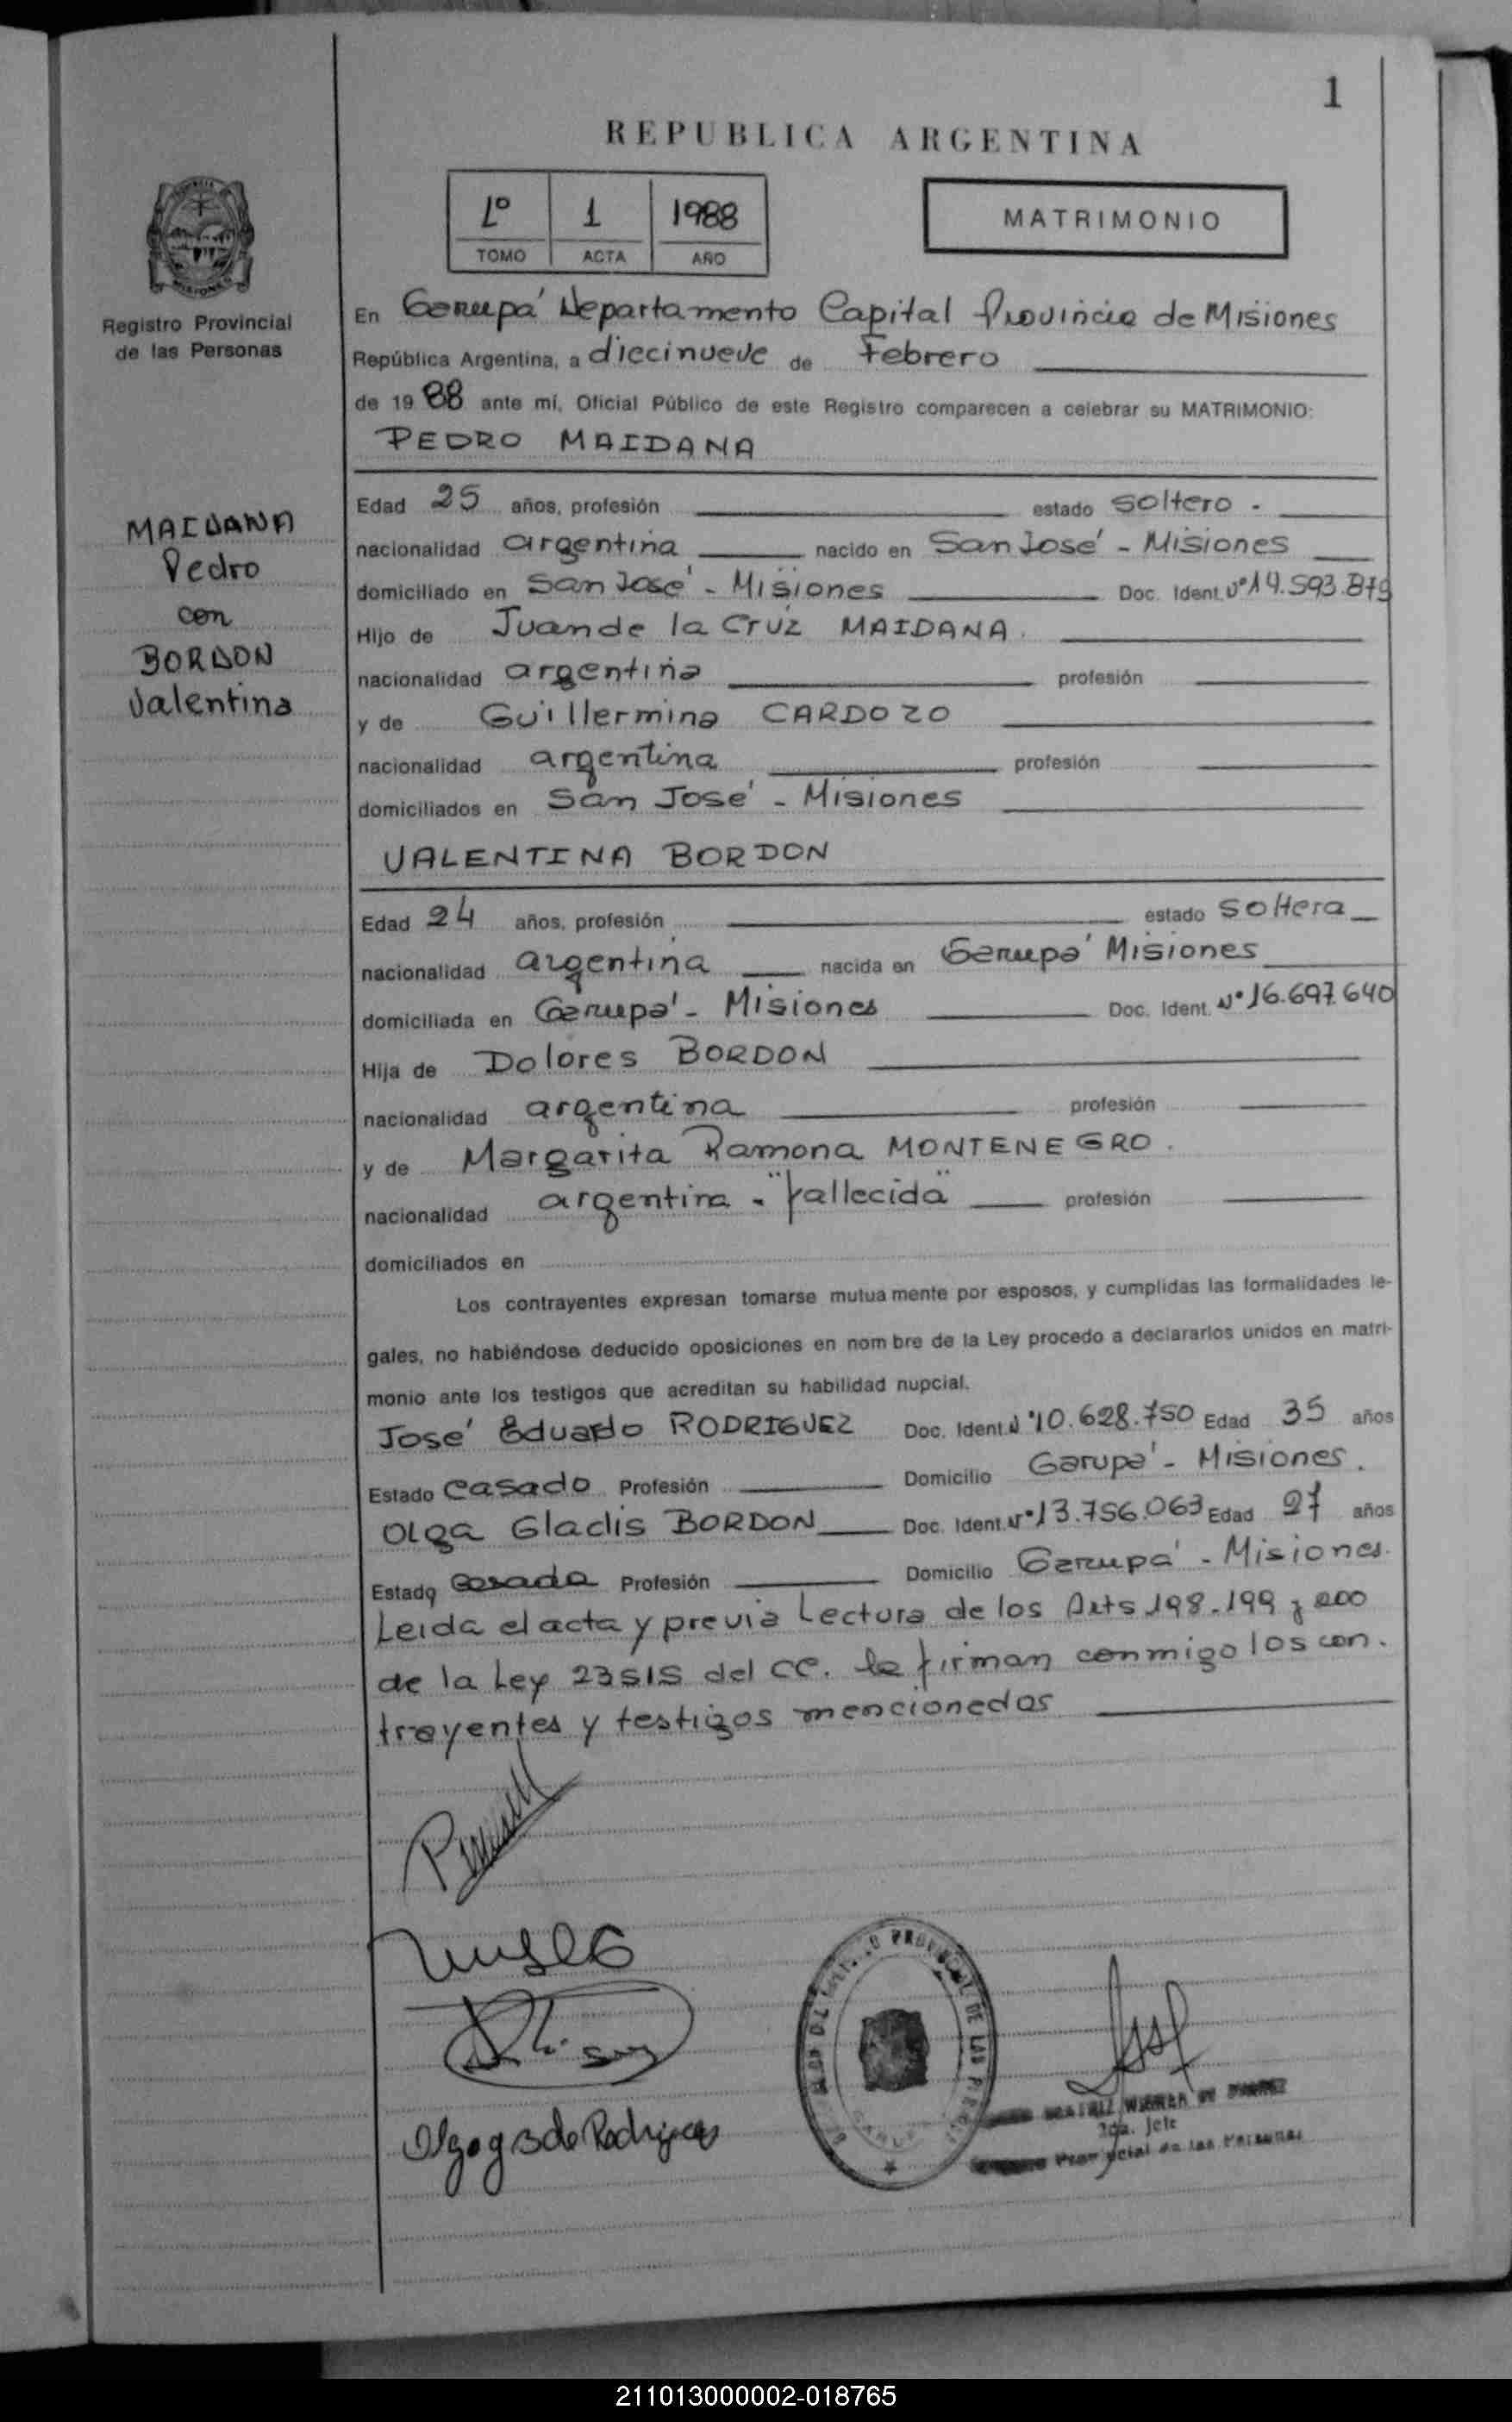 1
REPUBLICA ARGENTINA
1º 1 1988
TOMO ACTA AÑO
MATRIMONIO
Registro Provincial
de las Personas
MAIDANA
Pedro
con
BORDON
Valentina
En Garupá Departamento Capital Provincia de Misiones
República Argentina, a diecinueve de Febrero
de 1988 ante mí, Oficial Público de este Registro comparecen a celebrar su MATRIMONIO:
PEDRO MAIDANA
Edad 25 años, profesión estado soltero -
nacionalidad argentina nacido en San José - Misiones
domiciliado en San José - Misiones Doc. Ident. Nº 14.593.879
Hijo de Juan de la Cruz MAIDANA.
nacionalidad argentina profesión
y de Guillermina CARDOZO
nacionalidad argentina profesión
domiciliados en San José - Misiones
VALENTINA BORDON
Edad 24 años, profesión estado soltera
nacionalidad argentina nacida en Garupá Misiones
domiciliada en Garupá - Misiones Doc. Ident. Nº 16.697.640
Hija de Dolores BORDON
nacionalidad argentina profesión
y de Margarita Ramona MONTENEGRO.
nacionalidad argentina - "fallecida" profesión
domiciliados en
Los contrayentes expresan tomarse mutuamente por esposos, y cumplidas las formalidades le-
gales, no habiéndose deducido oposiciones en nombre de la Ley procedo a declararlos unidos en matri-
monio ante los testigos que acreditan su habilidad nupcial.
José Eduardo RODRIGUEZ Doc. Ident. Nº 10.628.750 Edad 35 años
Estado Casado Profesión Domicilio Garupá - Misiones.
Olga Gladis BORDON Doc. Ident. Nº 13.756.063 Edad 27 años
Estado Casada Profesión Domicilio Garupá - Misiones.
Leida el acta y previa Lectura de los Arts 198-199 y 200
de la Ley 23515 del CC. la firman conmigo los con-
trayentes y testigos mencionados
Olga g B de Rodriguez
PROVINCIAL DE LAS
BEATRIZ DE
Jefe
Provincial de las Personas
211013000002-018765